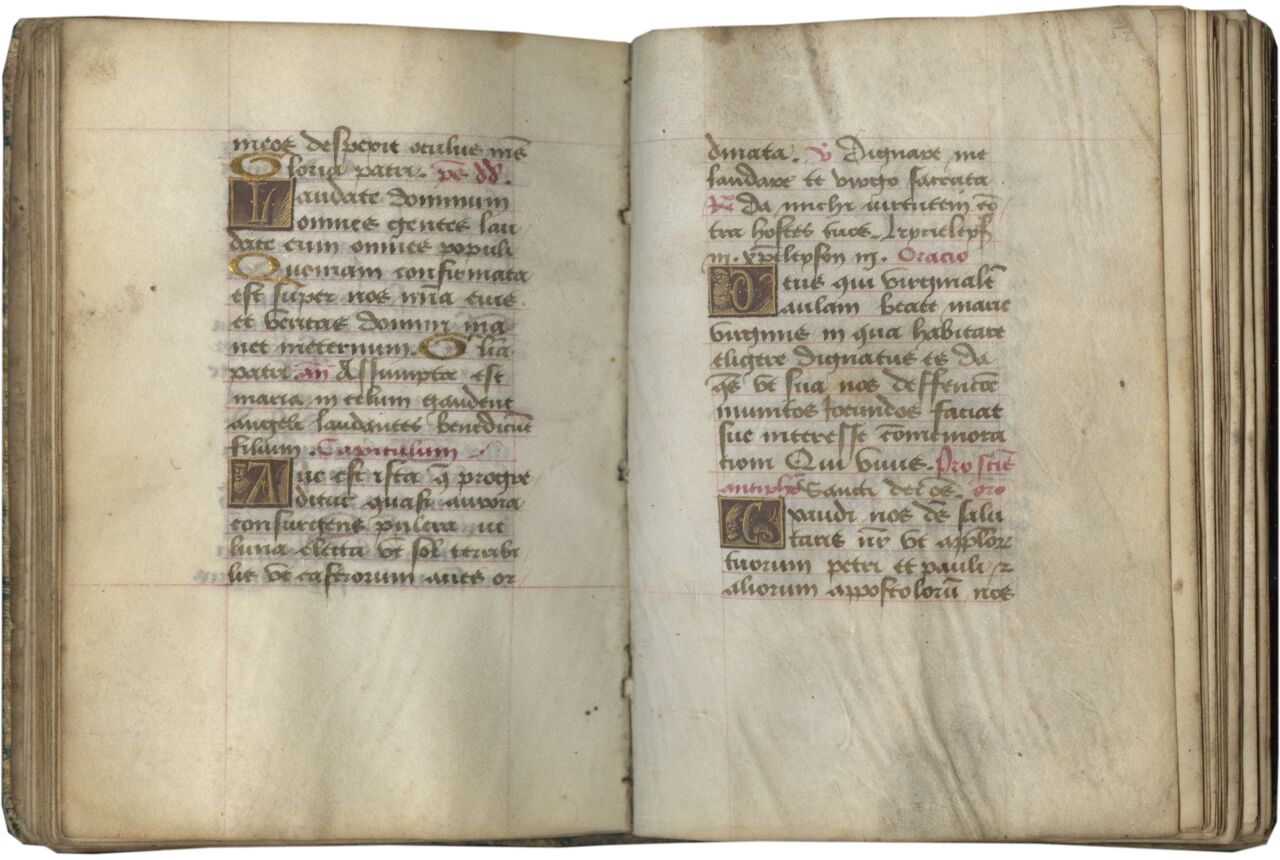 meos despexit oculus me᷒
Gloria patri. ps dd.
Laudate dominum
omnes gentes lau
date eum omnes populi
Quoniam confirmata
est super nos mīa eius
et veritas domini ma
net ineternum. Glīa
patri. an Assumpta est
maria in celum gaudent
angeli laudantes benedicūt
filium. Capitulum
Que est ista q̄ progre
ditur quasi aurora
consurgens pulcra ut
luna electa vt sol terribi
lis vt castrorum aties or
dinata. V Dignare me
laudare te virgo sacrata
R Da michi uirtutem cō
tra hostes tuos. kyrieleys
iij. xp̄eleyson iij. Oracio
Deus qui virginalē
aulam beate marie
virginis in qua habitare
eligere dignatus es da
q̄s vt sua nos deffencōe
munitos Iocundos faciat
sue interesse cōmemora
tioni Qui viuis. Pro sctīs
antiphō Sancti dei oēs. oro
Exaudi nos de᷒ salu
taris nr̄ vt applor᷒
tuorum petri et pauli z
aliorum appostolorū nos